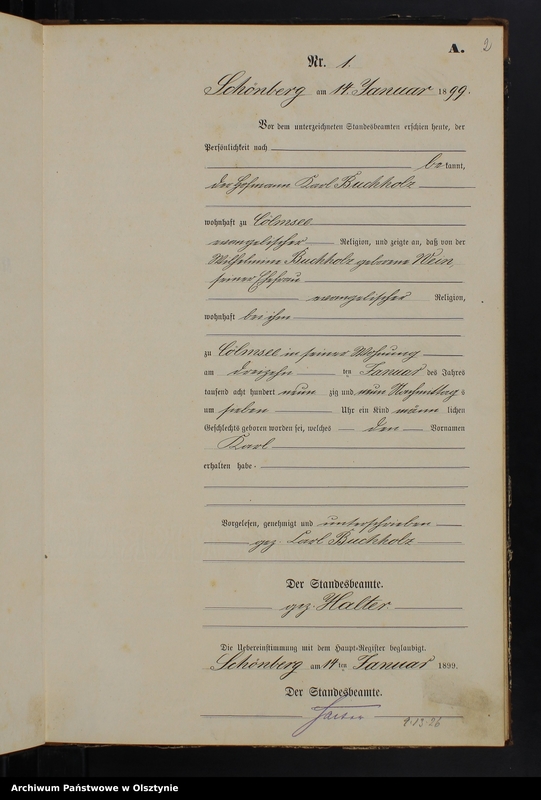 A. 2
Nr. 1.
Schönberg am 14. Januar 1899.
Vor dem unterzeichneten Standesbeamten erschien heute, der
Persönlichkeit nach
bekannt,
der Hofmann Karl Buchholz
wohnhaft zu Cölmsee
evangelischer Religion, und zeigte an, daß von der
Wilhelmine Buchholz geborene Wein,
seiner Ehefrau
evangelischer Religion,
wohnhaft bei ihm
zu Cölmsee in seiner Wohnung
am dreizehn ten Januar des Jahres
tausend acht hundert neun zig und neun Nachmittags
um sieben Uhr ein Kind männlichen
Geschlechts geboren worden sei, welches den Vornamen
Karl
erhalten habe.
Vorgelesen, genehmigt und unterschrieben
gez. Carl Buchholz
Der Standesbeamte.
gez. Halter
Die Uebereinstimmung mit dem Haupt-Register beglaubigt.
Schönberg am 14ten Januar 1899.
Der Standesbeamte.
Halter
9.13.26
Archiwum Państwowe w Olsztynie